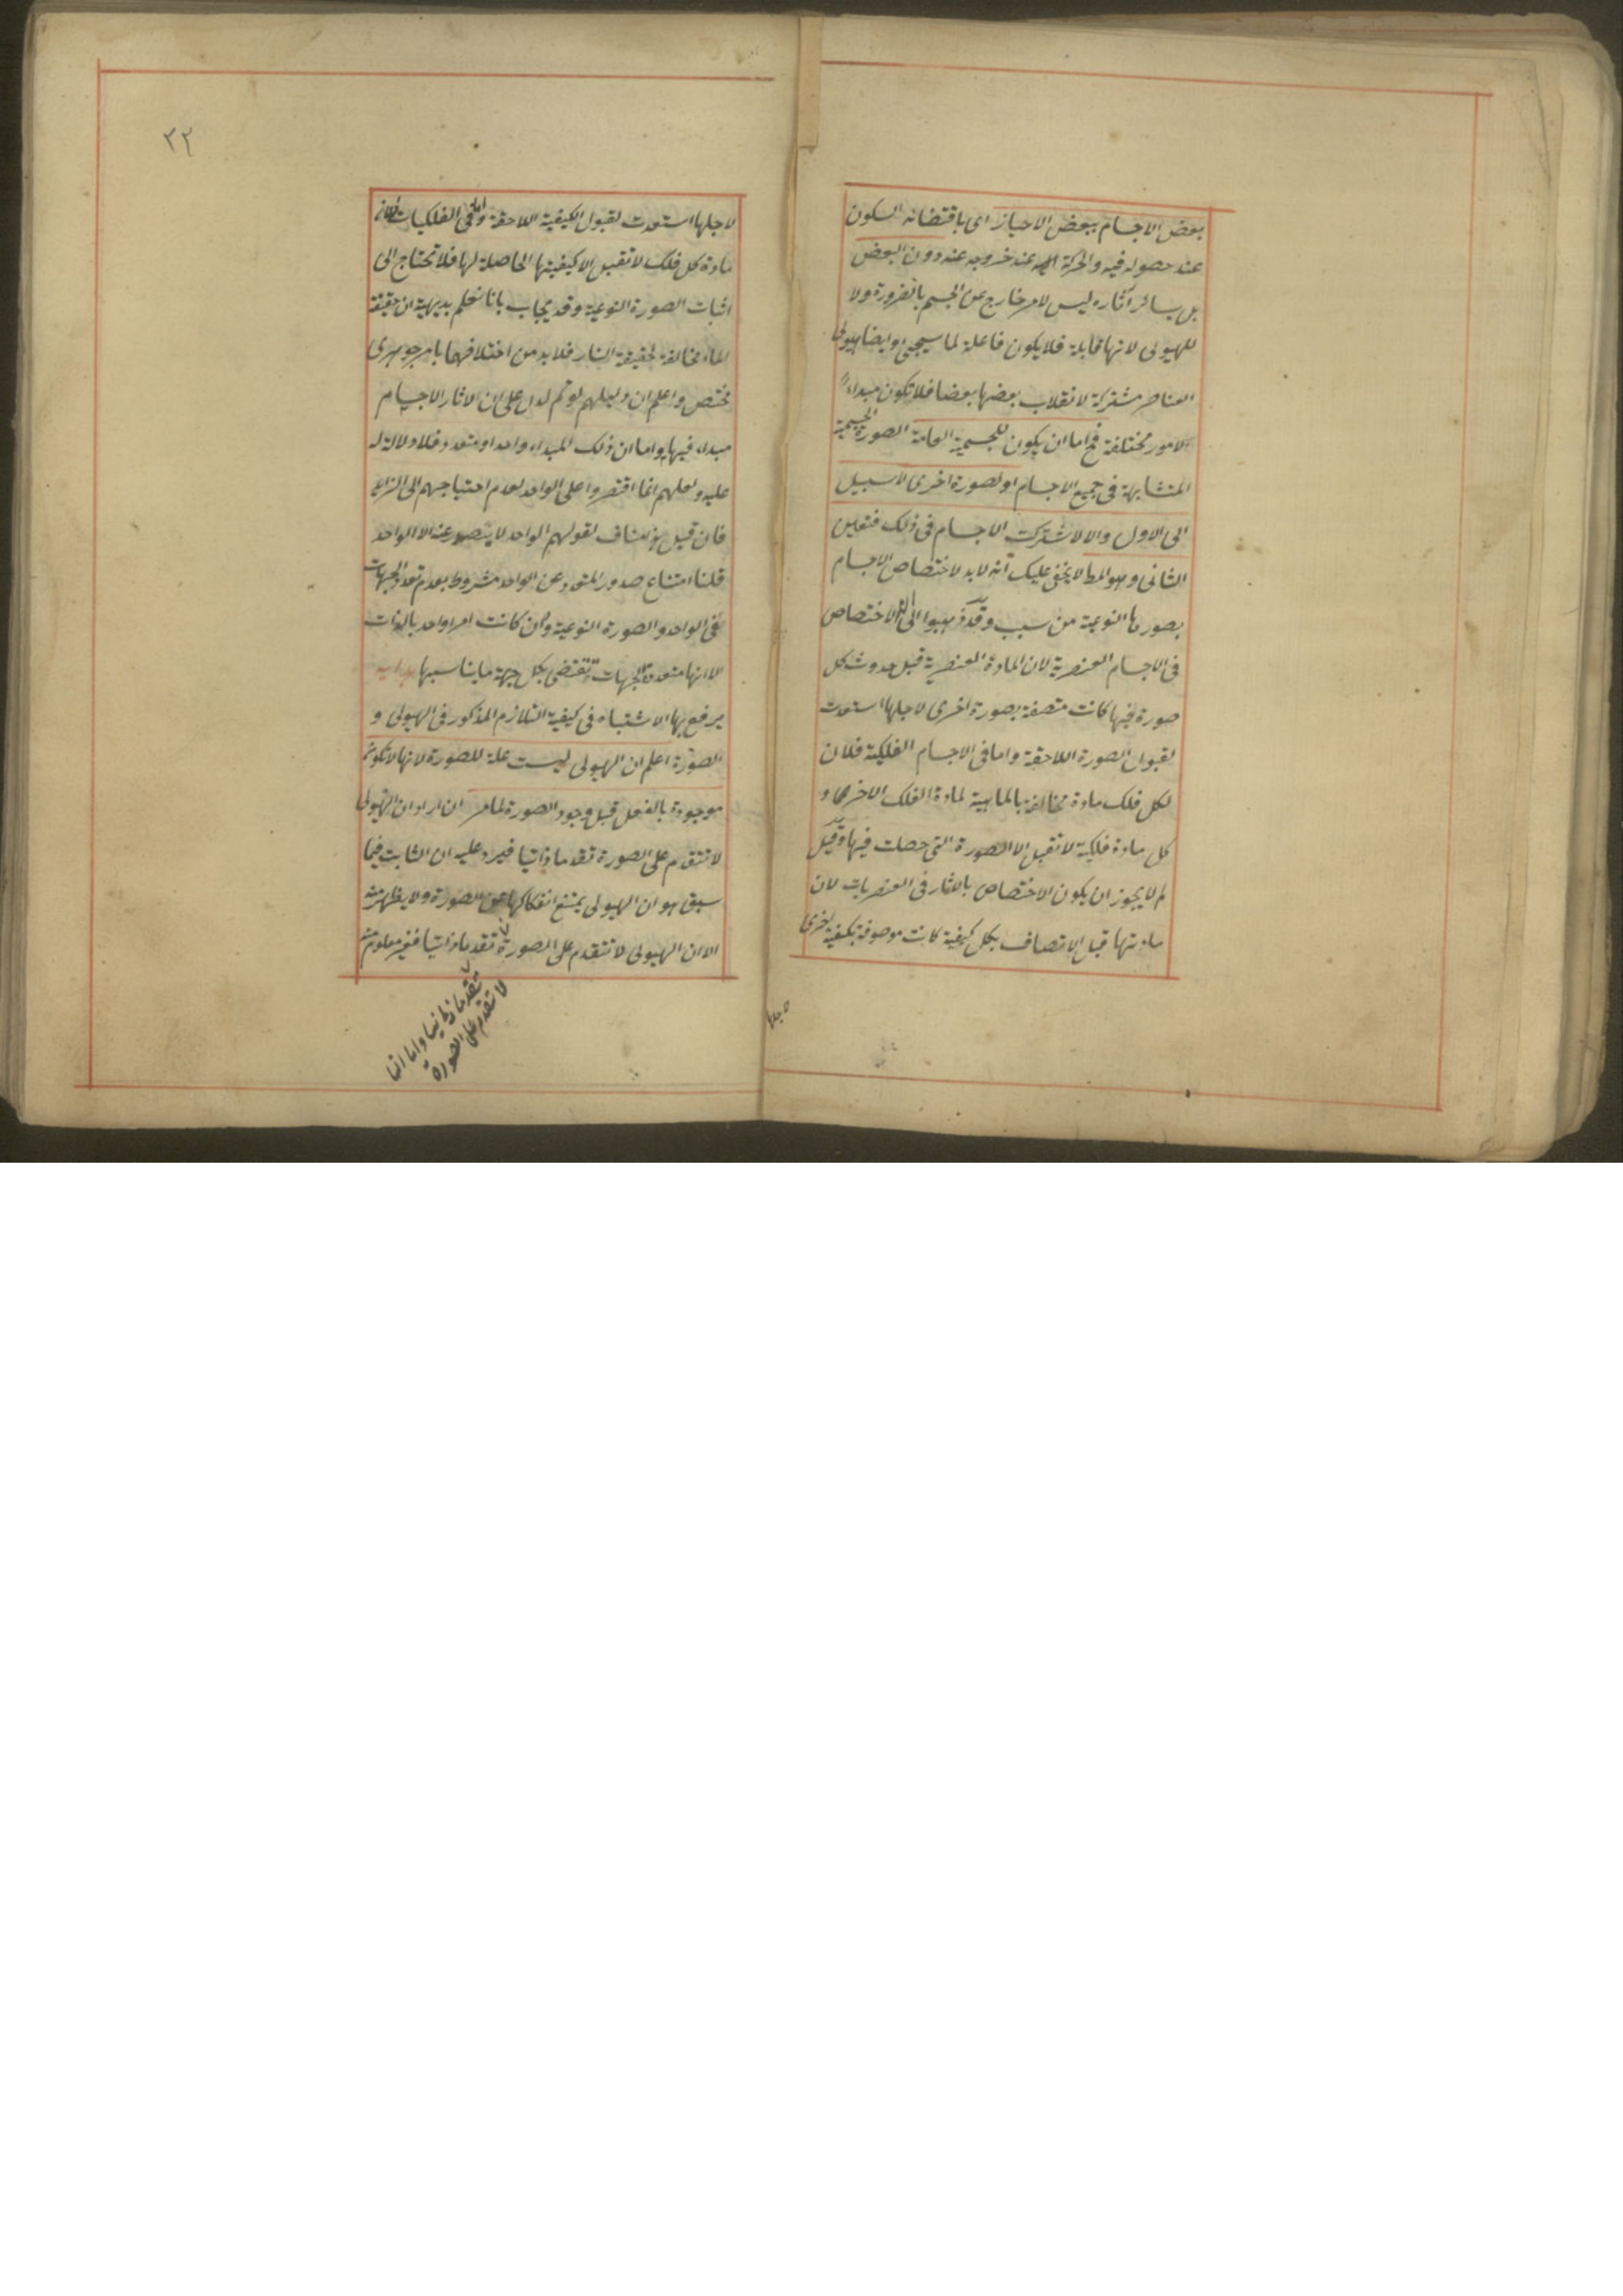 بعض الاجسام ببعض الاحياز اى باقتضائه السكون
عند حصوله فيه والحركة اليه عند خروجه عنه دون البعض
بل بسائر آثاره ليس لامر خارج عن الجسم بالضرورة ولا
للهيولى لانها قابلة فلا يكون فاعلة لما سيجئ وايضا هيولى
العناصر مشتركة لانقلاب بعضها بعضا فلا تكون مبداء
لامور مختلفة فح اما ان يكون للجسمية العامة الصورة الجسمية
المتشابهة فى جميع الاجسام او لصورة اخرى لا سبيل
الى الاول والا لاشتركت الاجسام فى ذلك فتعين
الثانى وهو المط لا يخفى عليك انه لابد لاختصاص الاجسام
بصورها النوعية من سبب وقد ذهبوا الى ان الاختصاص
فى الاجسام العنصرية لان المادة العنصرية قبل حدوث كل
صورة فيها كانت متصفة بصورة اخرى لاجلها استعدت
لقبول الصورة اللاحقة واما فى الاجسام الفلكية فلان
لكل فلك مادة مخالفة بالماهية لمادة الفلك الاخرى و
كل مادة فلكية لا تقبل الا الصورة التى حصلت فيها وقيل
لم لا يجوز ان يكون الاختصاص بالاثار فى العنصريات لان
مادتها قبل الاتصاف بكل كيفية كانت موصوفة بكيفية اخرى
لاجلها
٣٢
لاجلها استعدت لقبول الكيفية اللاحقة واما فى الفلكيات فلان
مادة كل فلك لا تقبل الا كيفيتها الحاصلة لها فلا تحتاج الى
اثبات الصورة النوعية وقد يجاب بانا نعلم بديهية ان حقيقة
الماء مخالفة لحقيقة النار فلا بد من اختلافهما بامر جوهرى
مختص واعلم ان دليلهم لو تم لدل على ان الاثار الاجسام
مبداء فيها واما ان ذلك المبداء واحد او متعدد فلا دلالة له
عليه ولعلهم انما اقتصروا على الواحد لعدم احتياجهم الى الزايد
فان قيل هذا مناف لقولهم الواحد لا يصدر عنه الا الواحد
قلنا امتناع صدور المتعدد عن الواحد مشروط بعدم تعدد الجهات
فى الواحد والصورة النوعية وان كانت امرا واحد بالذات
الا انها متعددة الجهات تقتضى بكل جهة ما يناسبها هداية
يرفع بها الاشتباه فى كيفية التلازم المذكور فى الهيولى و
الصورة اعلم ان الهيولى ليست علة للصورة لانها لا تكون
موجودة بالفعل قبل وجود الصورة لما مر ان اراد ان الهيولى
لا تتقدم على الصورة تقدما ذاتيا فيرد عليه ان الثابت فيما
سبق هو ان الهيولى يمتنع انفكاكها عن الصورة ولا يظهر منه
الا ان الهيولى لا تتقدم على الصورة تقدما ذاتيا فغير معلوم منه
تقدما زمانيا واما انها
لا تتقدم على الصورة